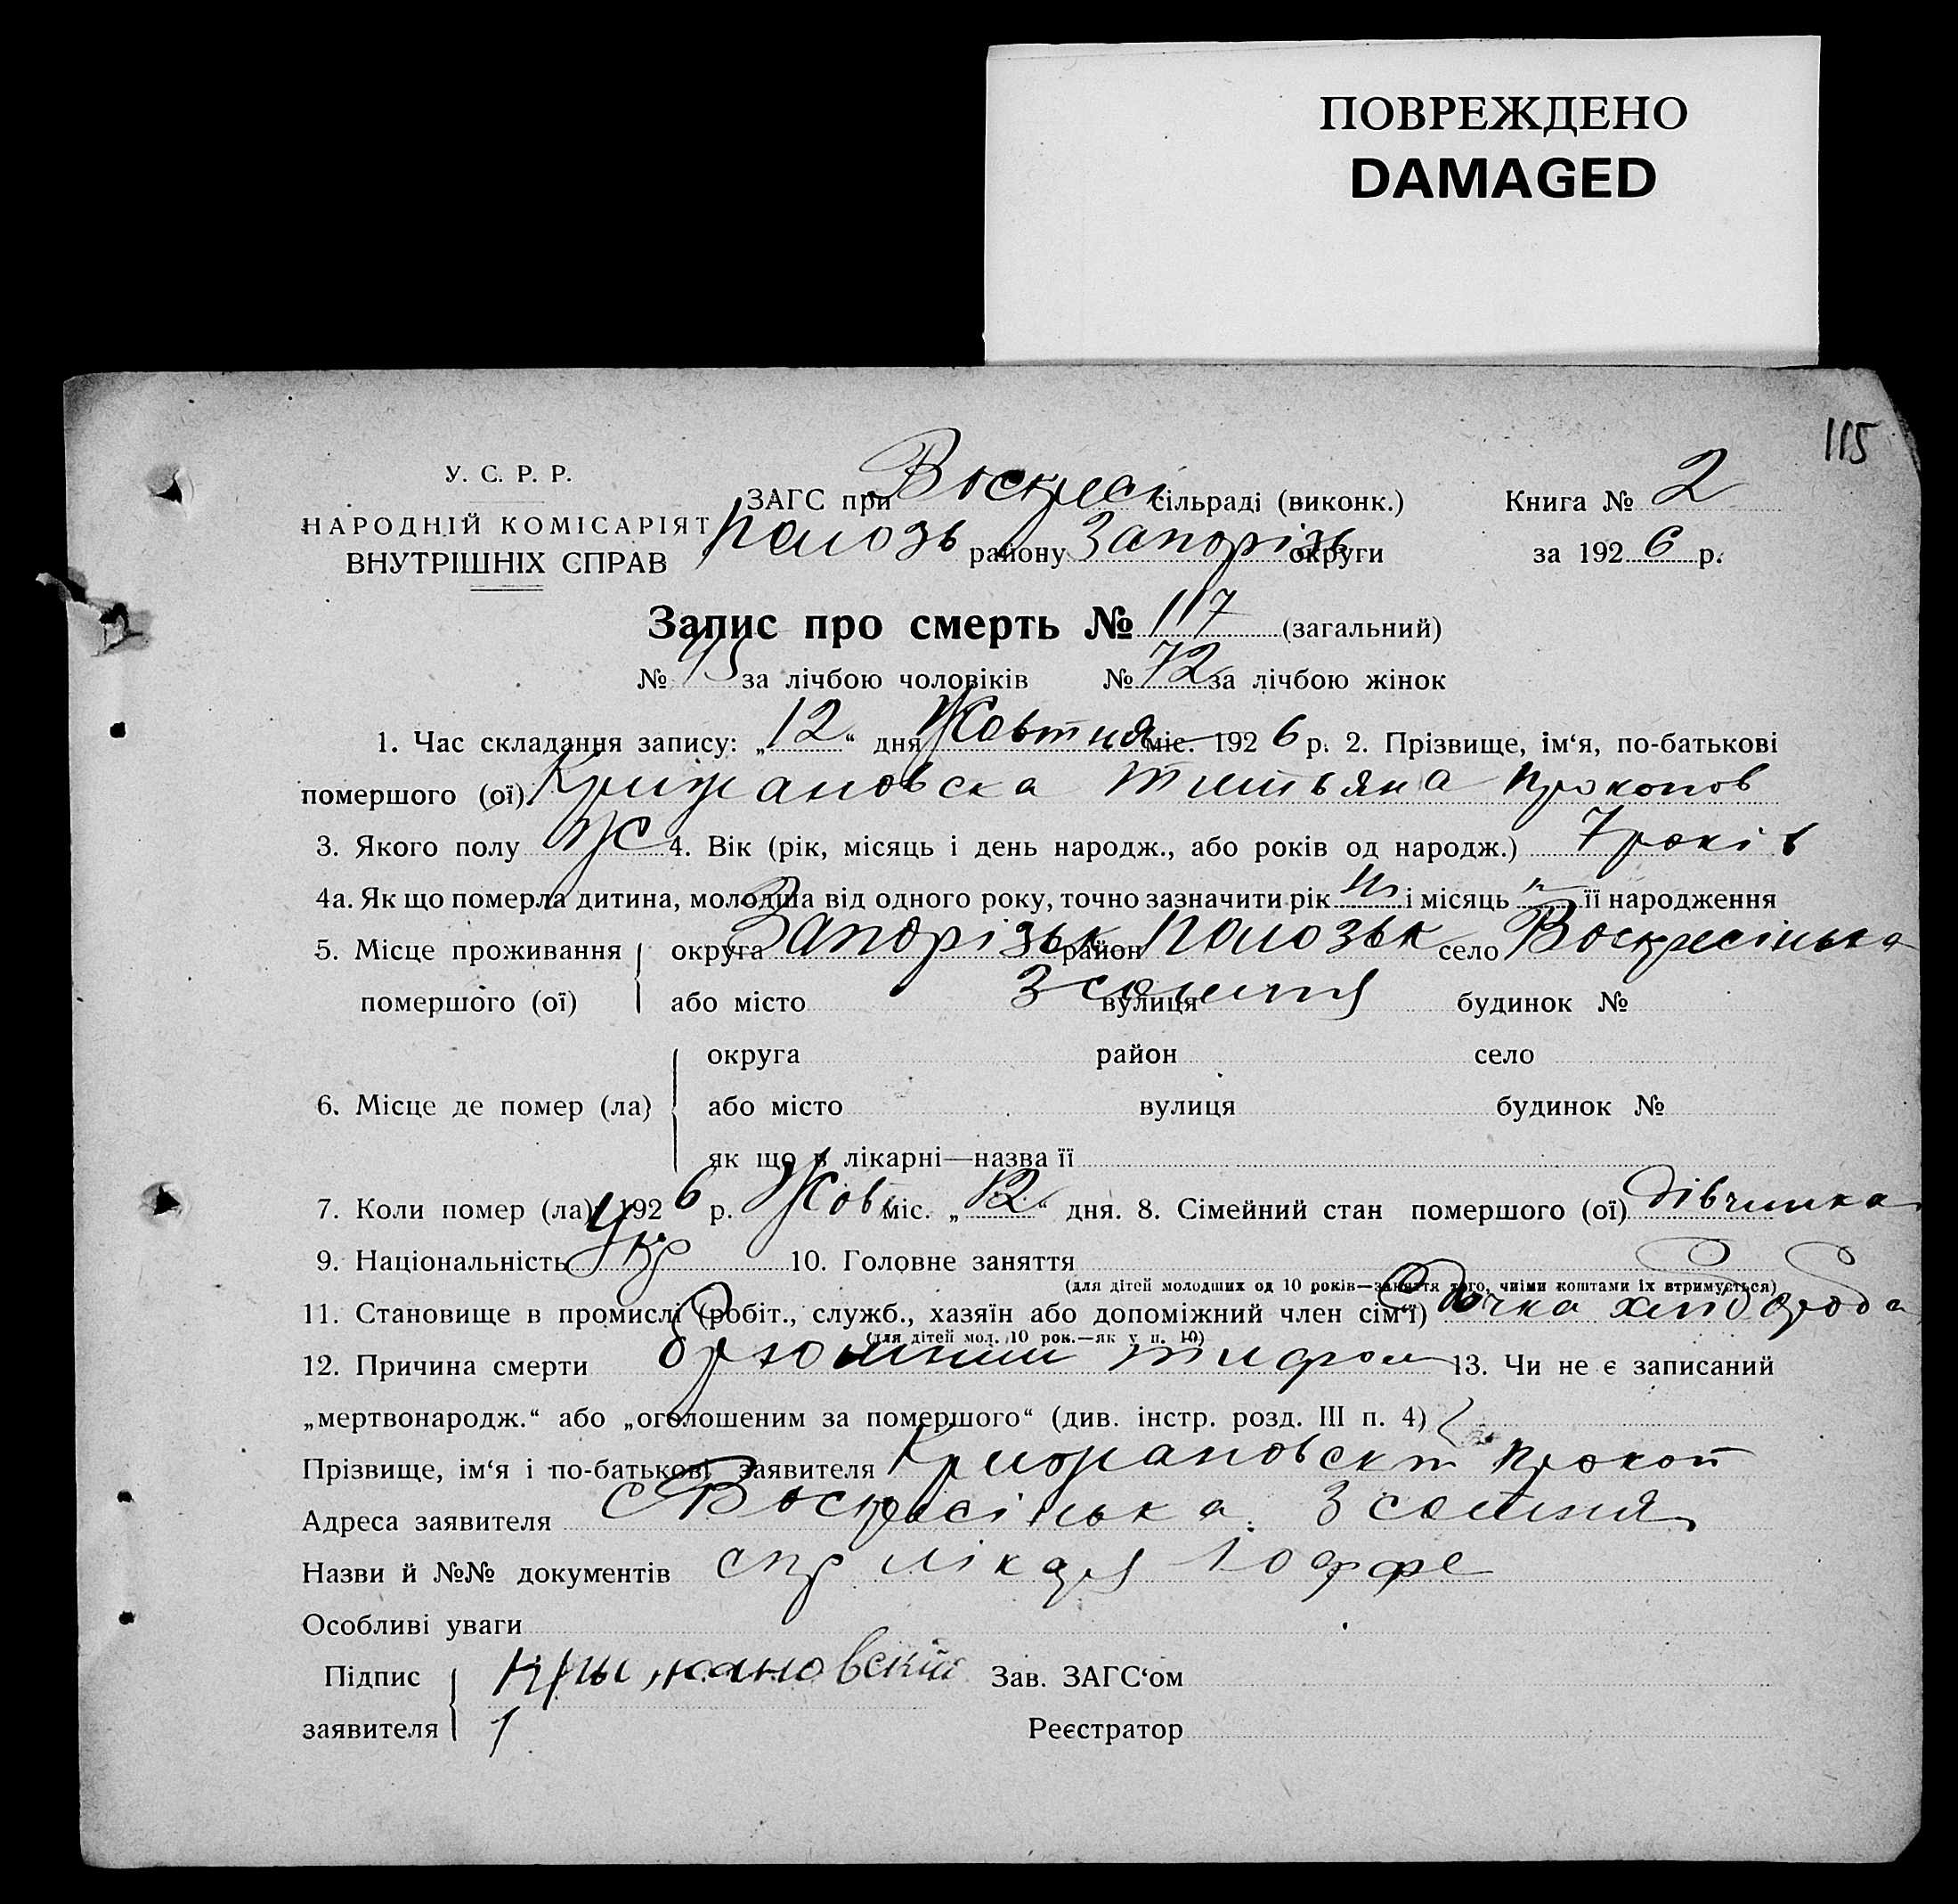 ПОВРЕЖДЕНО
DAMAGED
115
У. С. Р. Р.
НАРОДНІЙ КОМІСАРІЯТ
ВНУТРІШНІХ СПРАВ
ЗАГС при Воскресі сільраді (виконк.) Книга № 2
Пологзь району Запорізь округи за 1926 р.
Запис про смерть № 117 (загальний)
№ за лічбою чоловіків № 72 за лічбою жінок
1. Час складання запису: „12“ дня Жовтня міс. 1926 р. 2. Прізвище, ім‘я, по-батькові
помершого (ої) Крижановска Титьяна Прокопов
3. Якого полу Ж 4. Вік (рік, місяць і день народж., або років од народж.) 7 років
4а. Як що померла дитина, молодша від одного року, точно зазначити рік і місяць її народження
5. Місце проживання округа Запорізьк район Полозьк село Воскресінька
помершого (ої) або місто 3 сотня вулиця будинок №
округа район село
6. Місце де помер (ла) або місто вулиця будинок №
як що в лікарні—назва її
7. Коли помер (ла) 1926 р. Жов міс. „12“ дня. 8. Сімейний стан помершого (ої) дівчинка
9. Національність Укр 10. Головне заняття
(для дітей молодших од 10 років—заняття того, чиїми коштами їх втримується)
11. Становище в промислі (робіт., служб., хазяїн або допоміжний член сім‘ї) Дочка хлібороба
(для дітей мол. 10 рок.—як у п. 10)
12. Причина смерти брюшний тифом 13. Чи не є записаний
„мертвонародж.“ або „оголошеним за помершого“ (див. інстр. розд. III п. 4)
Прізвище, ім‘я і по-батькові заявителя Крижановскт Прокоп
Адреса заявителя с Воскресінька 3 сотня
Назви й №№ документів спр лікаря Іоффе
Особливі уваги
Підпис Крыжановский Зав. ЗАГС‘ом
заявителя Реєстратор